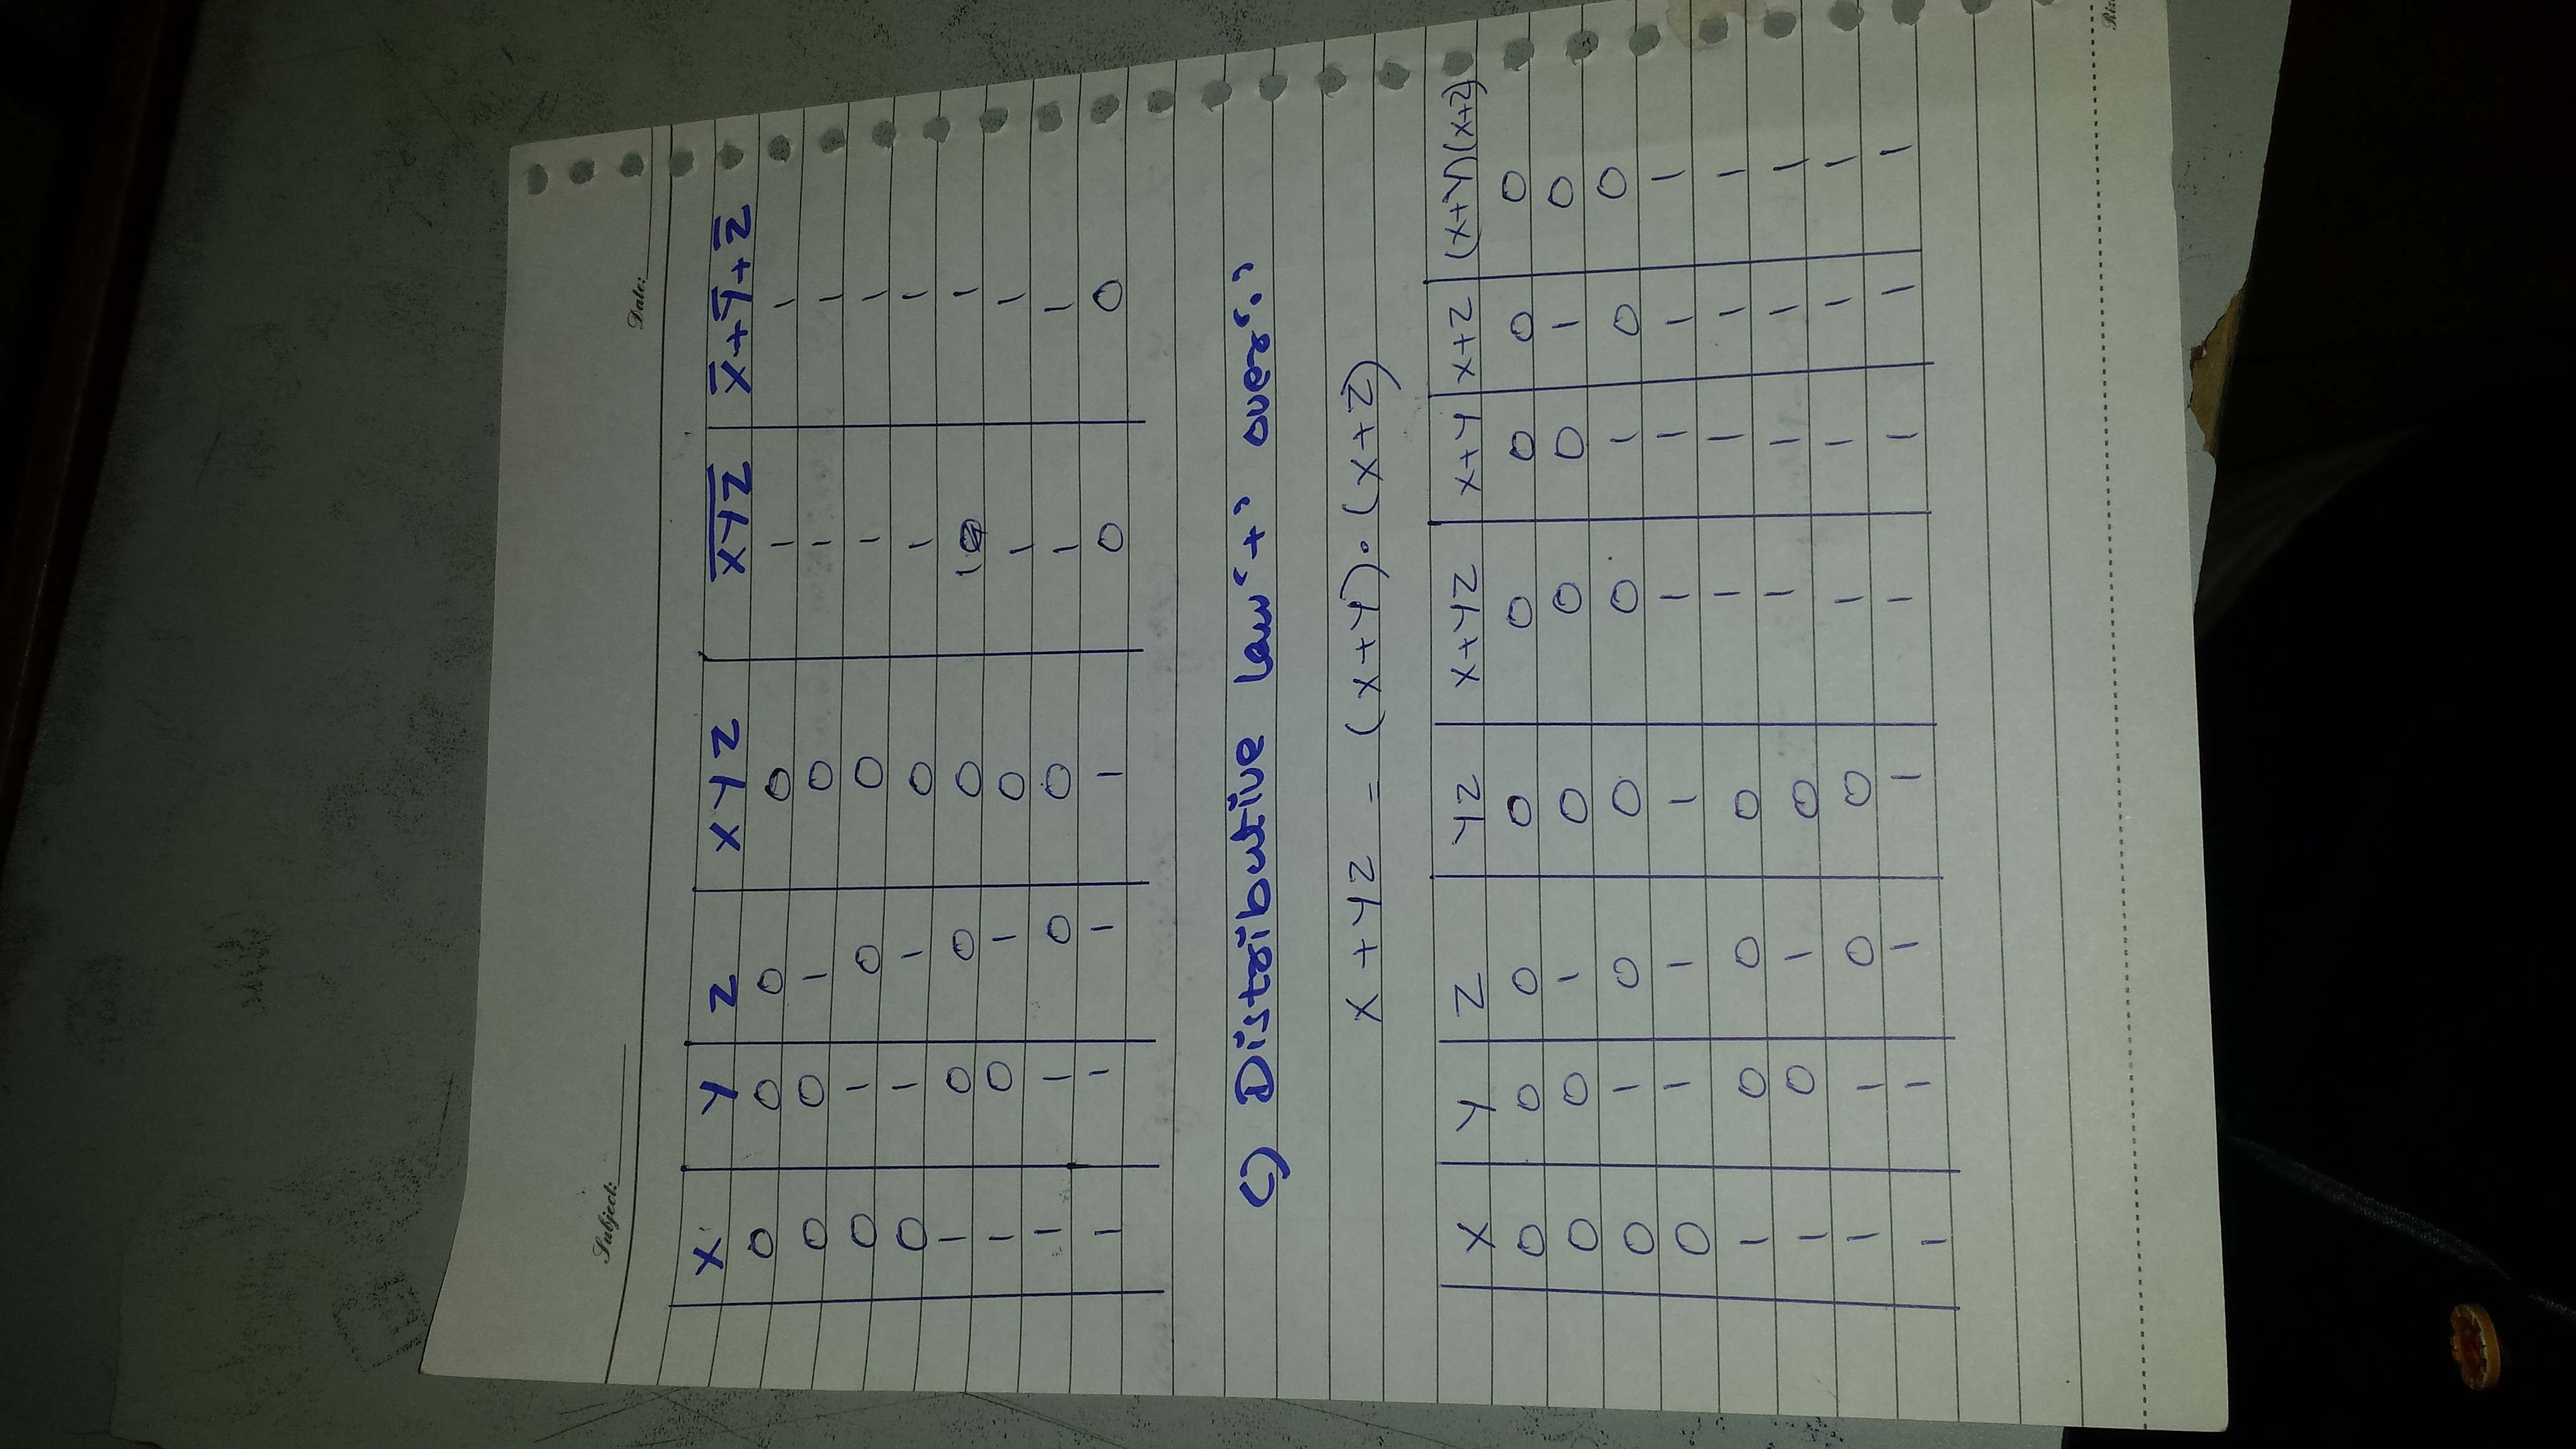 Subject: Date:
X Y Z XYZ X̅Y̅Z̅ X̅+Y̅+Z̅
0 0 0 0 1 1
0 0 1 0 1 1
0 1 0 0 1 1
0 1 1 0 1 1
1 0 0 0 1 1
1 0 1 0 1 1
1 1 0 0 1 1
1 1 1 1 0 0
c) Distributive law '+' over '.'
X + YZ = (X+Y).(X+Z)
X Y Z YZ X+YZ X+Y X+Z (X+Y)(X+Z)
0 0 0 0 0 0 0 0
0 0 1 0 0 0 1 0
0 1 0 0 0 1 0 0
0 1 1 1 1 1 1 1
1 0 0 0 1 1 1 1
1 0 1 0 1 1 1 1
1 1 0 0 1 1 1 1
1 1 1 1 1 1 1 1